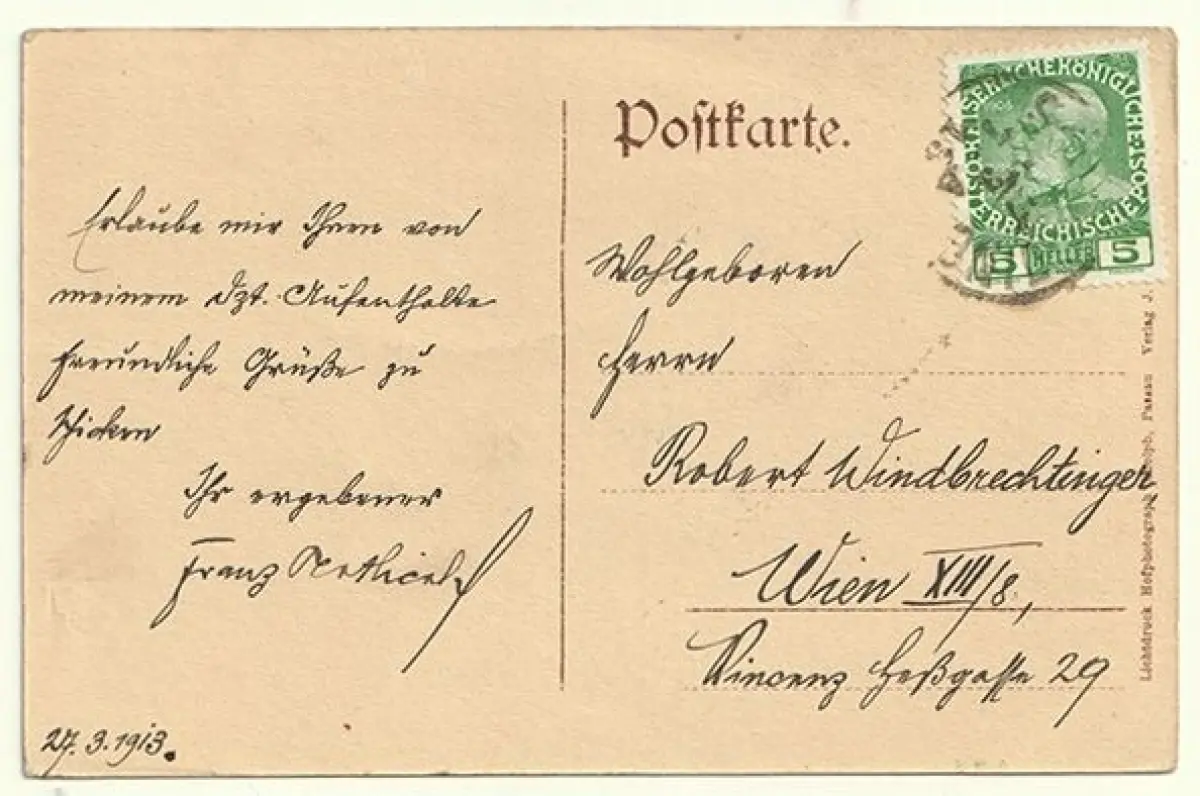 Postkarte.
KAISERLICHE KÖNIGLICHE ÖSTERREICHISCHE POST
5 HELLER 5
Erlaube mir Ihnen von
meinem dzt. Aufenthalte
freundliche Grüße zu
schicken
Ihr ergebener
Franz
27.3.1913.
Wohlgeboren
Herrn
Robert Windbrechtinger
Wien XIII/8,
Vincenz Heßgasse 29
Lichtdruck Hofphotograph Passau Verlag J.